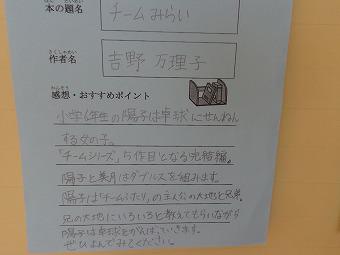 本の題名
チームみらい
さくしゃめい
作者名
吉野 万理子
かんそう
感想・おすすめポイント
小学6年生の陽子は卓球にせんねん
する女の子。
「チームシリーズ」5作目となる完結編。
陽子と美月はダブルスを組みます。
陽子は「チームふたり」の主人公の大地と兄弟。
兄の大地にいろいろと教えてもらいながら
陽子は卓球をがんばっていきます。
ぜひよんでみてください。